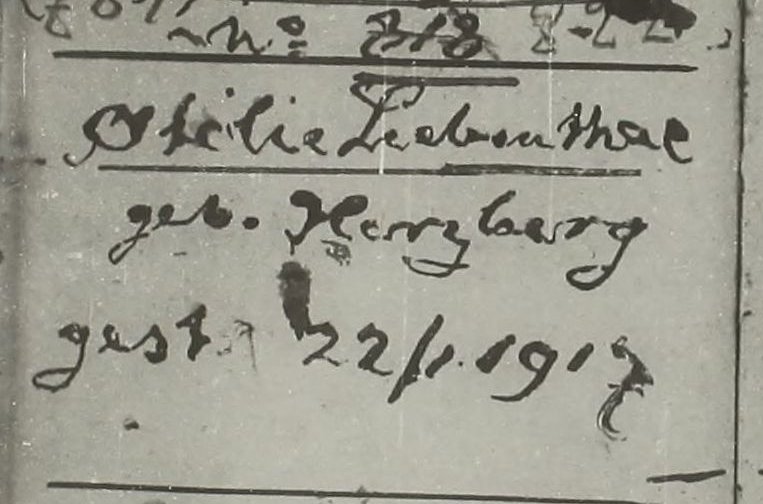 No 818
Otilie Liebenthal
geb. Herzberg
gest. 22/1.1917